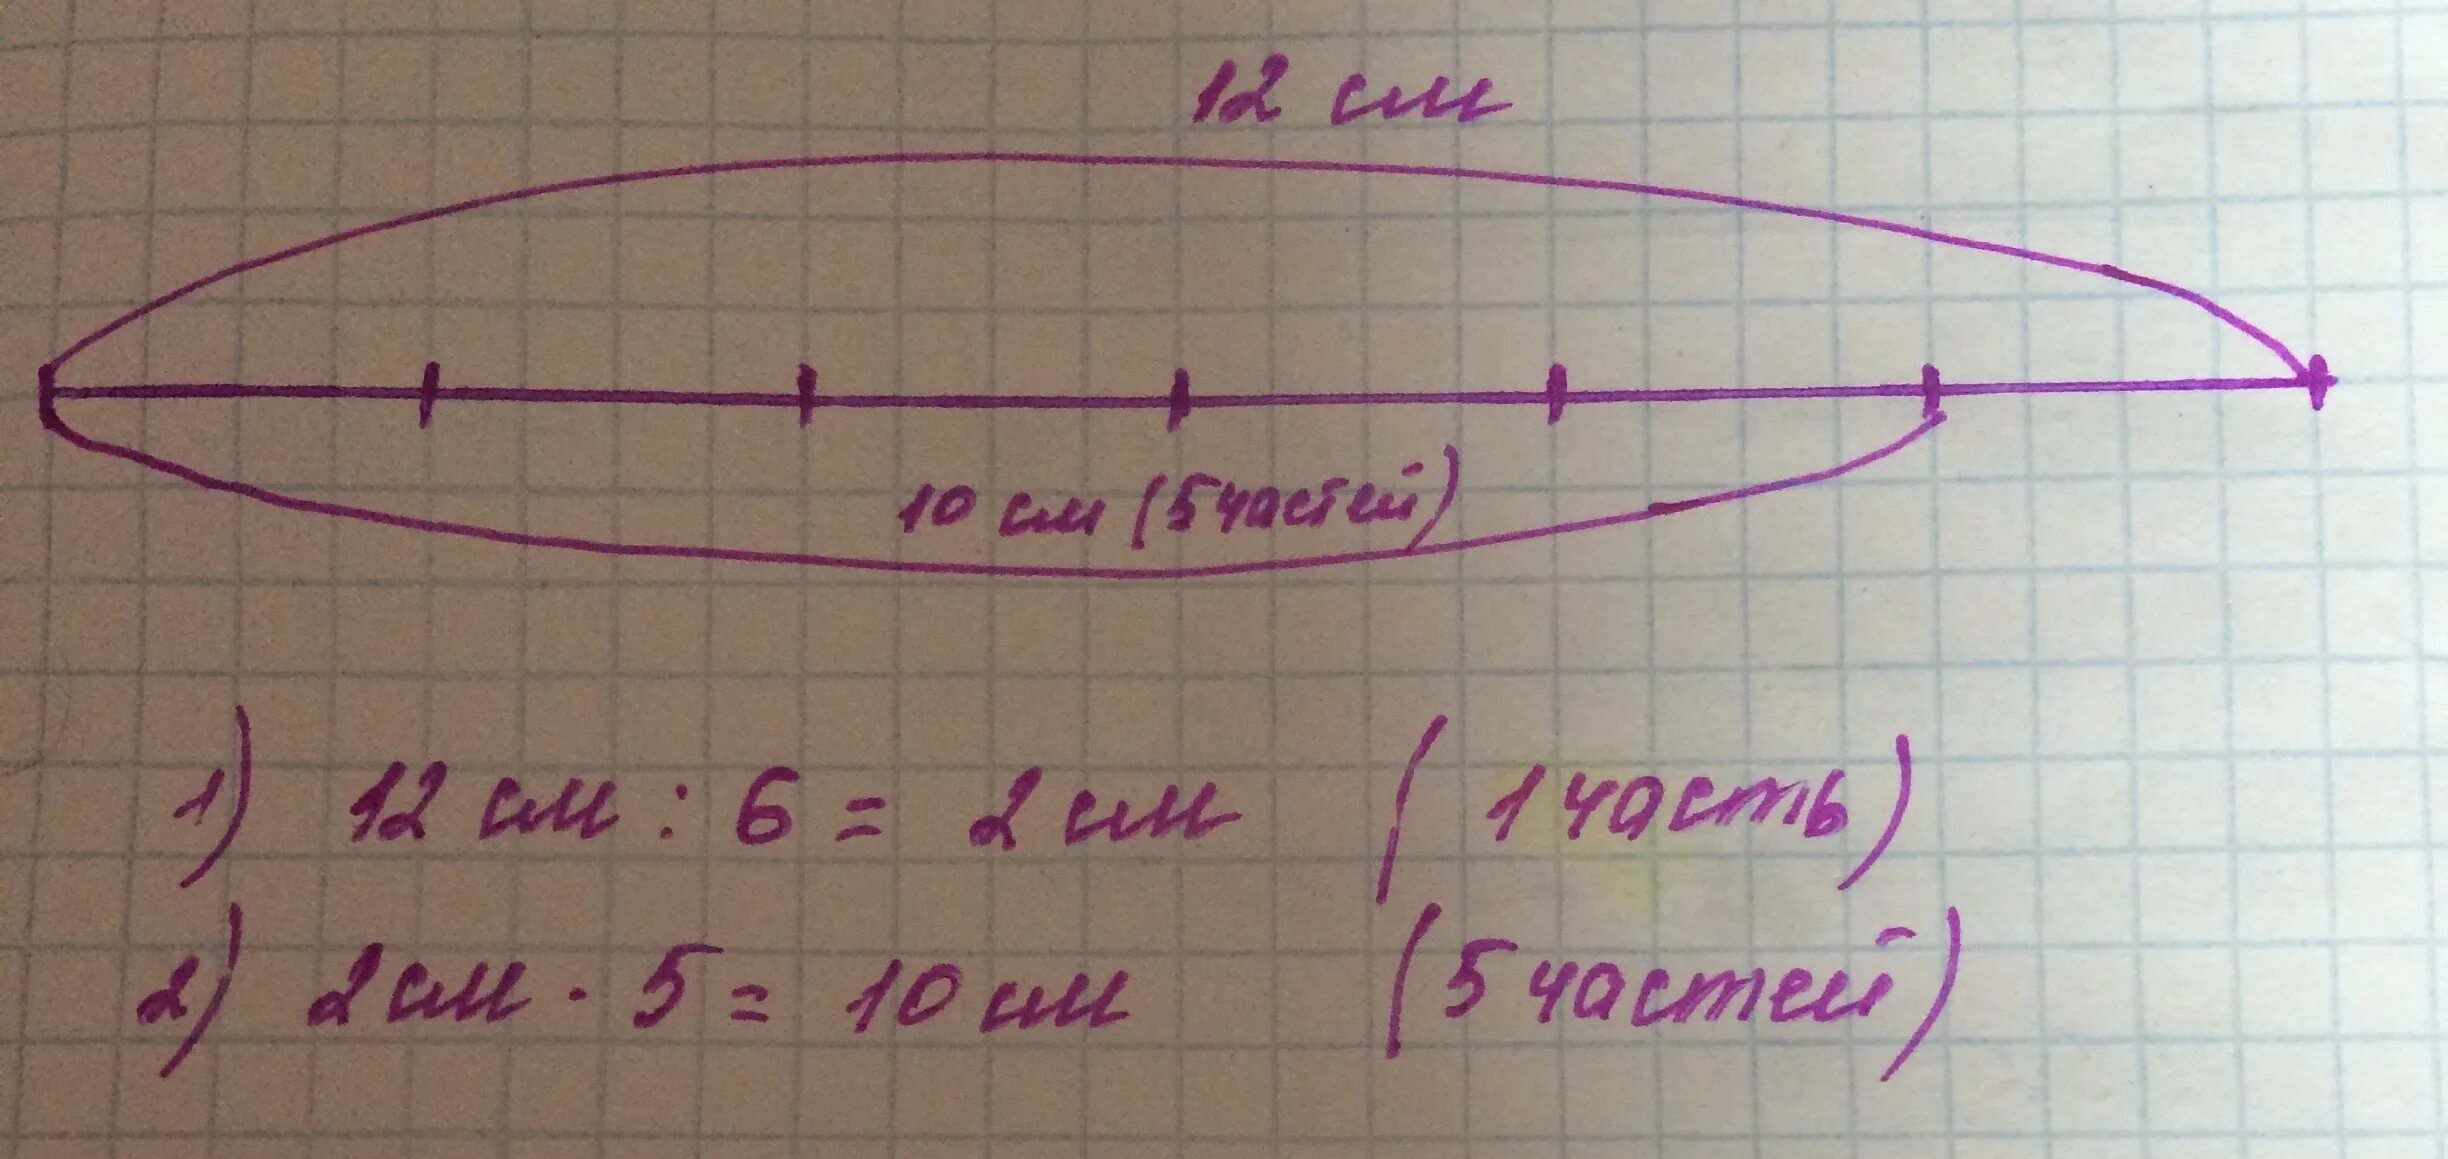 12 см
10 см (5 частей)
1) 12 см : 6 = 2 см (1 часть)
2) 2 см · 5 = 10 см (5 частей)